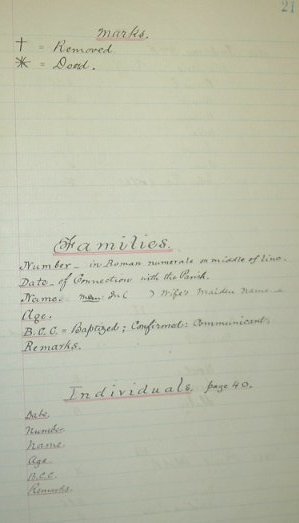 21
Marks.
† = Removed
* = Dead.
Families.
Number - in Roman numerals in middle of line.
Date - of Connection with the Parish.
Name. In ( ) Wife's Maiden Name
Age.
B.C.C. = Baptized; Confirmed; Communicant.
Remarks.
Individuals, page 40.
Date
Number
Name
Age
B.C.C.
Remarks.